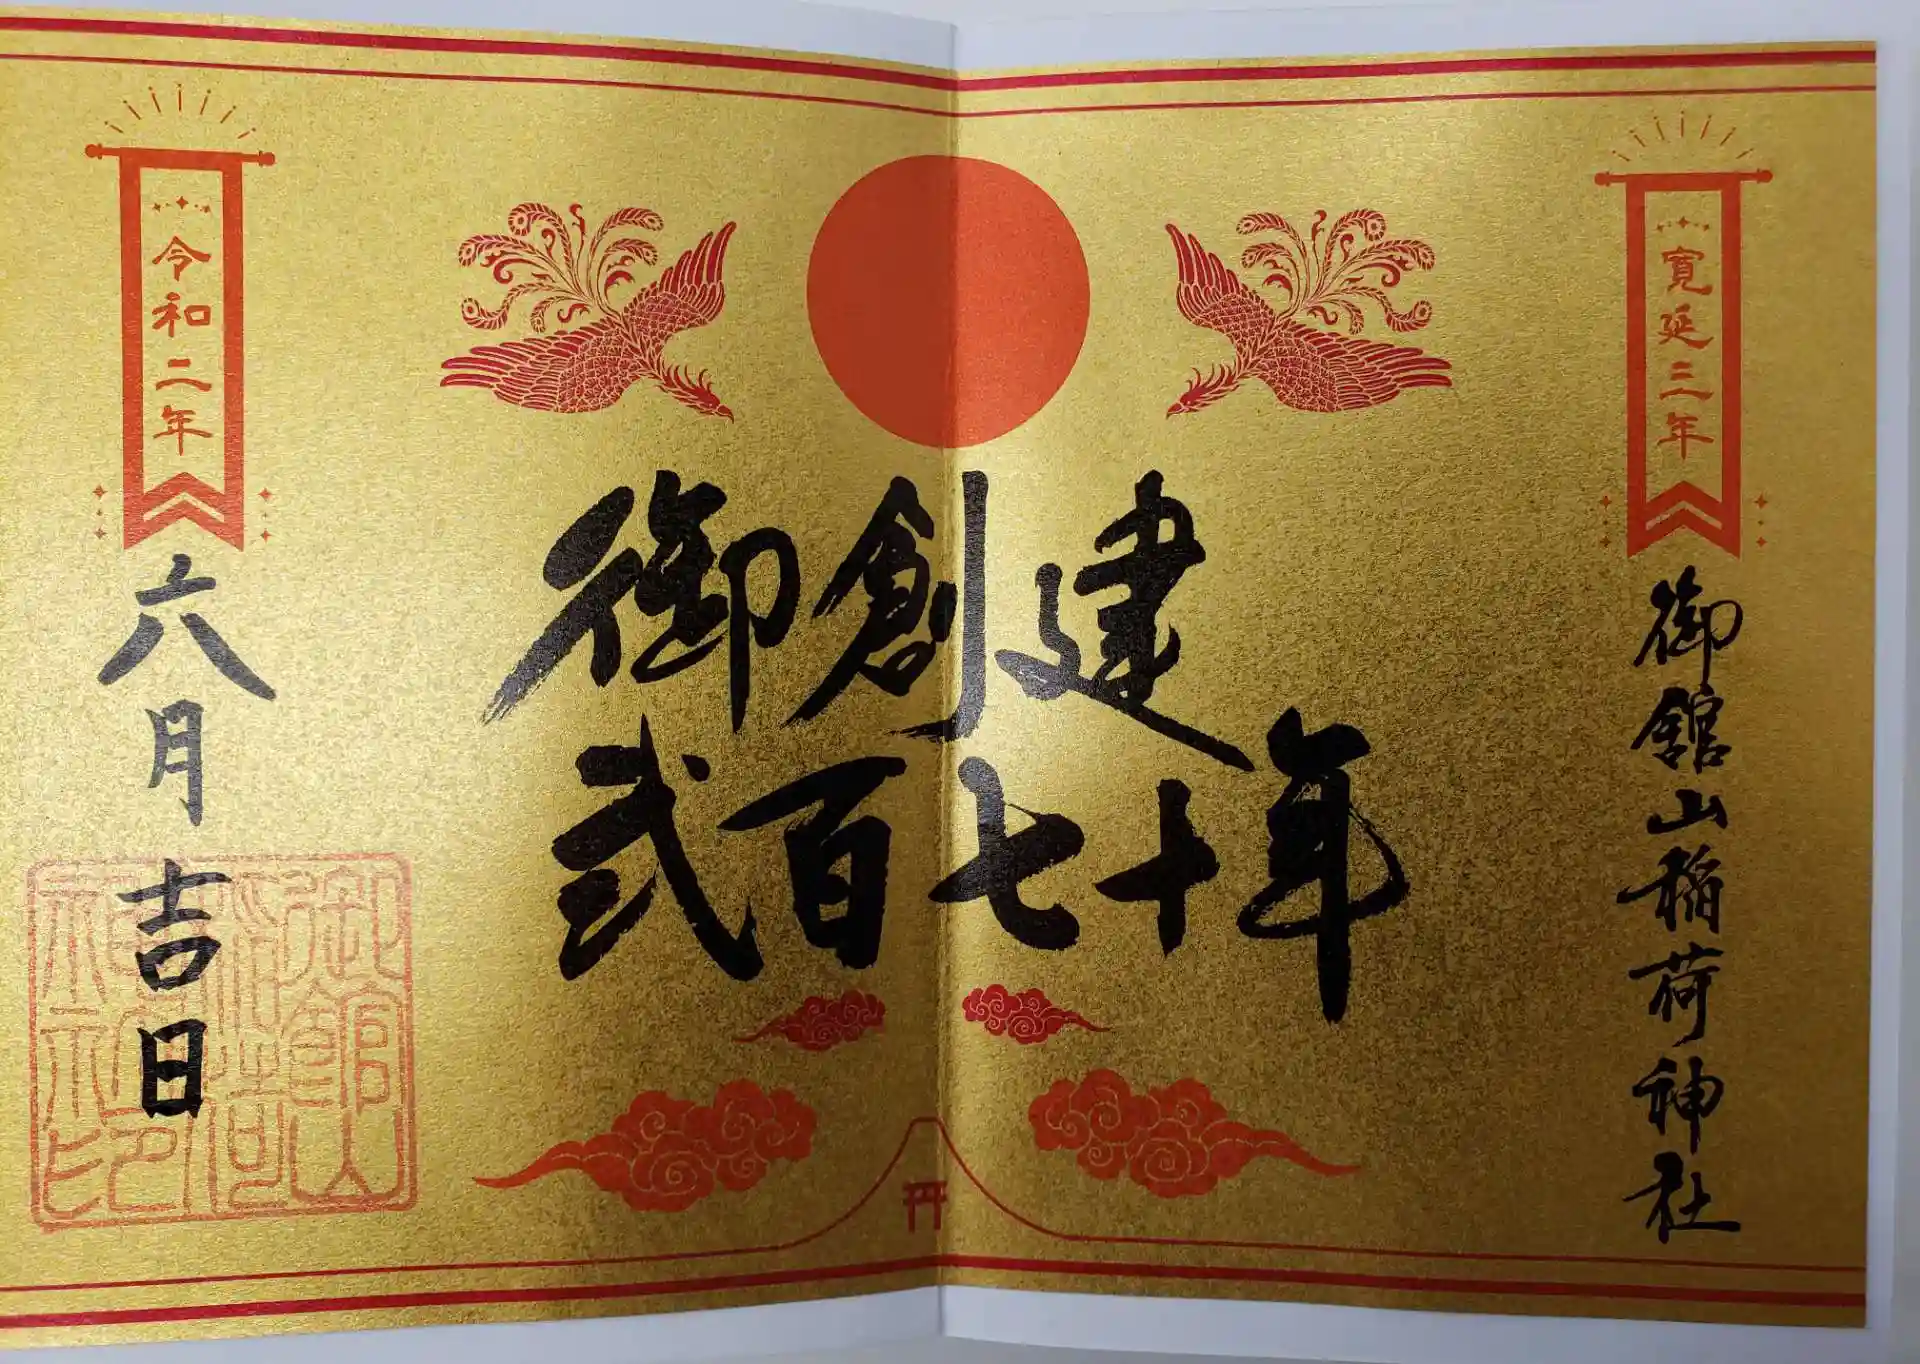 寛延三年
御舘山稲荷神社
御創建
弐百七十年
令和二年
六月吉日